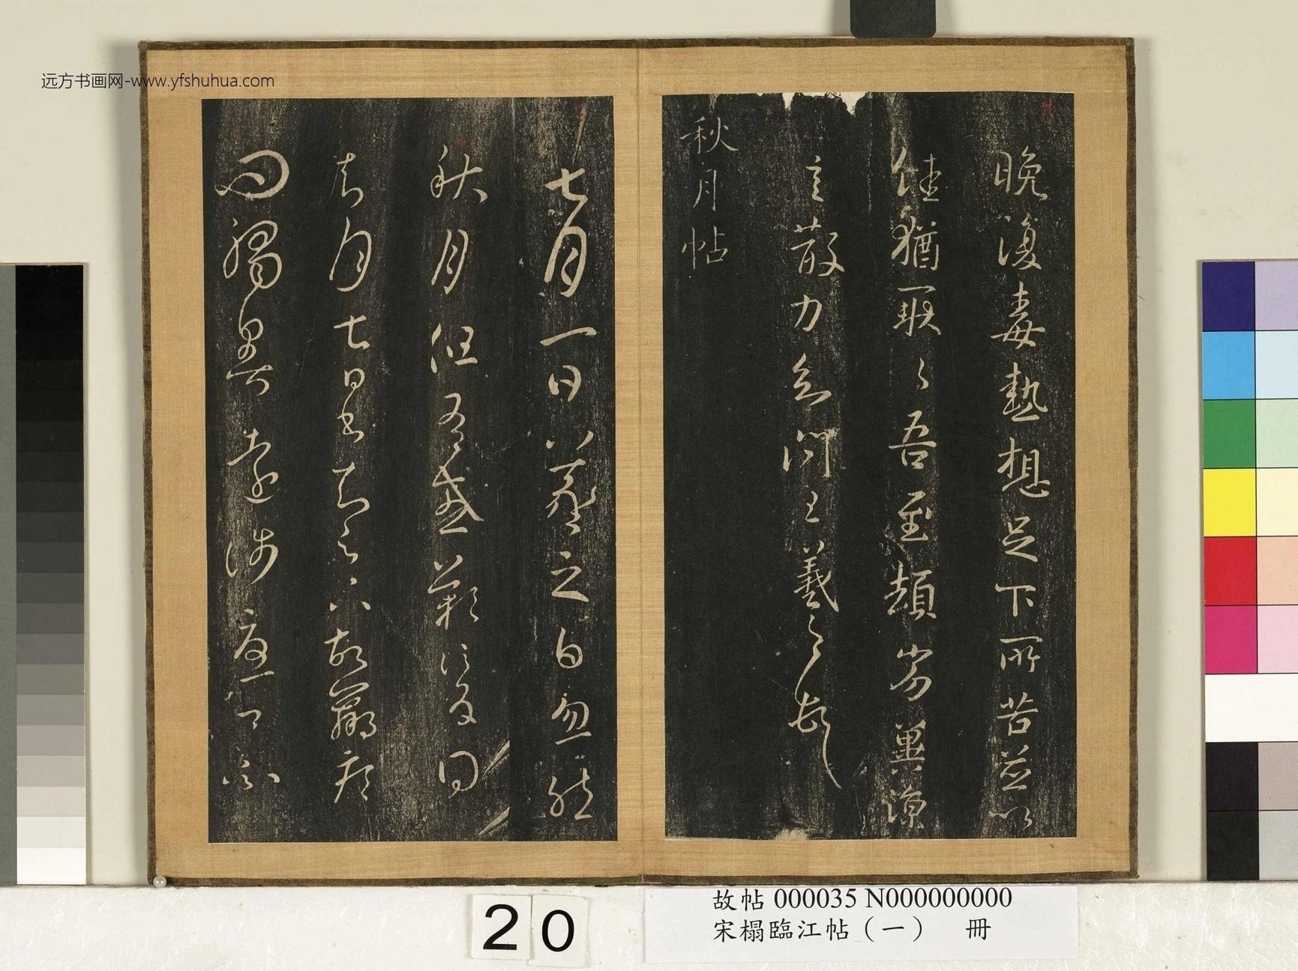 远方书画网-www.yfshuhua.com
晚復毒熱想足下所苦並以
佳猶耿耿吾至頓劣冀涼
言散力知問王羲之頓
秋月帖
七月一日羲之白忽然
秋月但有感歎信反得
去月七日書知足下故羸疾
問觸暑遠涉憂卿不
20
故帖 000035 N000000000
宋榻臨江帖（一） 冊